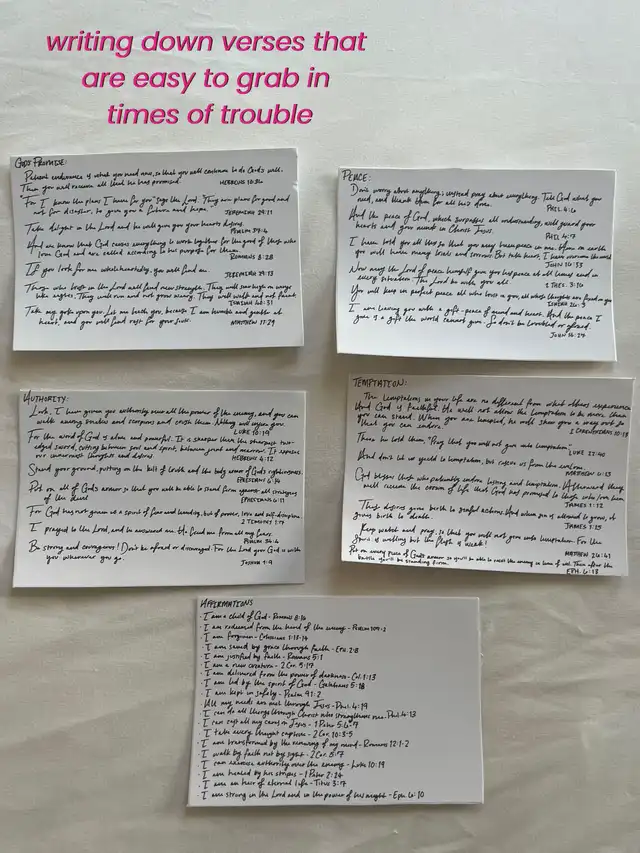 writing down verses that
are easy to grab in
times of trouble
GOD'S PROMISE:
Patient endurance is what you need now, so that you will continue to do God's will.
Then you will receive all that he has promised. HEBREWS 10:36
"For I know the plans I have for you" says the Lord. They are plans for good and
not for disaster, to give you a future and hope. JEREMIAH 29:11
Take delight in the Lord and he will give you your hearts desires.
PSALM 37:4
And we know that God causes everything to work together for the good of those who
love God and are called according to his purpose for them.
ROMANS 8:28
If you look for me wholeheartedly, you will find me.
JEREMIAH 29:13
Those who trust in the Lord will find new strength. They will soar high on wings
like eagles. They will run and not grow weary. They will walk and not faint
ISAIAH 40:31
Take my yoke upon you. Let me teach you, because I am humble and gentle at
heart, and you will find rest for your souls. MATTHEW 11:29
PEACE:
Don't worry about anything; instead pray about everything. Tell God what you
need, and thank him for all he's done.
PHIL 4:6
And the peace of God, which surpasses all understanding, will guard your
hearts and your minds in Christ Jesus.
PHIL 4:7
I have told you all this so that you may have peace in me. Here on earth
you will have many trials and sorrows. But take heart, I have overcome the world
JOHN 16:33
Now may the Lord of peace himself give you his peace at all times and in
every situation. The Lord be with you all
2 THES. 3:16
You will keep in perfect peace all who trust in you, all whose thoughts are fixed on you
ISAIAH 26:3
I am leaving you with a gift - peace of mind and heart. And the peace I
give is a gift the world cannot give. So don't be troubled or afraid.
JOHN 14:27
AUTHORITY:
Look, I have given you authority over all the power of the enemy, and you can
walk among snakes and scorpions and crush them. Nothing will injure you.
LUKE 10:19
For the word of God is alive and powerful. It is sharper than the sharpest two-
edged sword, cutting between soul and spirit, between joint and marrow. It exposes
our innermost thoughts and desires.
HEBREWS 4:12
Stand your ground, putting on the belt of truth and the body armor of God's righteousness.
EPHESIANS 6:14
Put on all of God's armor so that you will be able to stand firm against all strategies
of the devil EPHESIANS 6:11
For God has not given us a spirit of fear and timidity, but of power, love and self-discipline.
2 TIMOTHY 1:7
I prayed to the Lord, and he answered me. He freed me from all my fears.
PSALM 34:4
Be strong and courageous! Don't be afraid or discouraged. For the Lord your God is with
you wherever you go. JOSHUA 1:9
TEMPTATION:
The temptations in your life are no different from what others experience
And God is faithful. He will not allow the temptation to be more than
you can stand. When you are tempted, he will show you a way out so
that you can endure. 1 CORINTHIANS 10:13
There he told them "Pray that you will not give into temptation".
LUKE 22:40
And don't let us yield to temptation, but rescue us from the evil one.
MATTHEW 6:13
God blesses those who patiently endure testing and temptation. Afterward they
will receive the crown of life that God has promised to those who love him
JAMES 1:12
These desires give birth to sinful actions. And when sin is allowed to grow, it
gives birth to death. JAMES 1:15
Keep watch and pray, so that you will not give into temptation. For the
spirit is willing but the flesh is weak!
MATTHEW 26:41
Put on every piece of God's armor so you'll be able to resist the enemy in time of evil. Then after the
battle you'll be standing firm. EPH. 6:13
AFFIRMATIONS
· I am a child of God - Romans 8:16
· I am redeemed from the hand of the enemy - Psalm 107:2
· I am forgiven - Colossians 1:13-14
· I am saved by grace through faith - Eph. 2:8
· I am justified by faith - Romans 5:1
· I am a new creature - 2 Cor. 5:17
· I am delivered from the power of darkness - Col. 1:13
· I am led by the spirit of God - Galatians 5:18
· I am kept in safety - Psalm 91:2
· All my needs are met through Jesus - Phil. 4:19
· I can do all things through Christ who strengthens me. Phil. 4:13
· I can cast all my cares on Jesus - 1 Peter 5:6-7
· I take every thought captive - 2 Cor. 10:3-5
· I am transformed by the renewing of my mind - Romans 12:1-2
· I walk by faith not by sight - 2 Cor. 5:7
· I can exercise authority over the enemy - Luke 10:19
· I am healed by his stripes - 1 Peter 2:24
· I am an heir of eternal life - Titus 3:7
· I am strong in the Lord and in the power of his might - Eph. 6:10